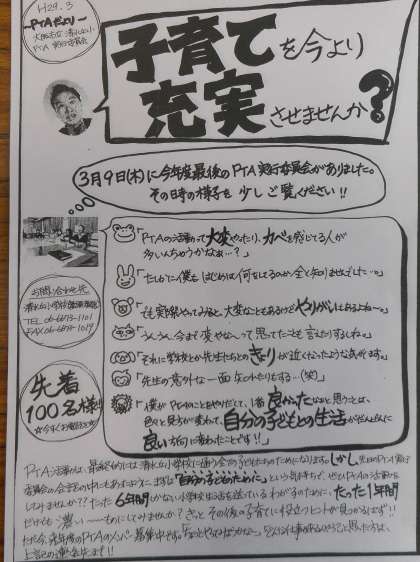 H29.3
~PTAだより~
PTA 実行委員会
子育てを今より
充実させませんか?
3月9日(木)に今年度最後のPTA実行委員会がありました。
その日の様子を少しご覧ください!!
「PTAの活動って大変やったり、カベを感じてる人が
多いんちゃうかなぁ…?」
「たしかに僕もはじめは何をしてるのか全く知りませんでした…。」
「でも実際やってみると、大変なこともあるけどやりがいもあるよね〜」
「うんうん、今まで変やな〜って思ってたことも言えたりするしね。」
「それに学校とか先生たちとのきょりが近くなったような気がします。」
「先生の意外な一面知れたりもする…(笑)」
「僕がPTAのことをやりだして、1番良かったなぁと思うことは、
色々と見方が変わって、自分の子どもとの生活がぜんぜん
良い方向に変わったことです!!」
お問い合わせ先
TEL 06-6878-1101
FAX 06-6878-1019
先着
100名様!!
☆今すぐお電話を☆
PTA活動は、最終的には清水小学校に通う全ての子どもたちのためになります。しかし、
委員会の会話の中にもあったように、まずは「自分の子どものために」という気持ちで、
してみませんか??たった6年間しかない小学校生活を送っているわが子のために、たった1年間
だけでも濃い〜ものにしてみませんか?きっとその後の子育てに役立つヒントが見つかるはず!!
ただ今、来年度のPTAのメンバー募集中です。
上記の連絡先まで!!